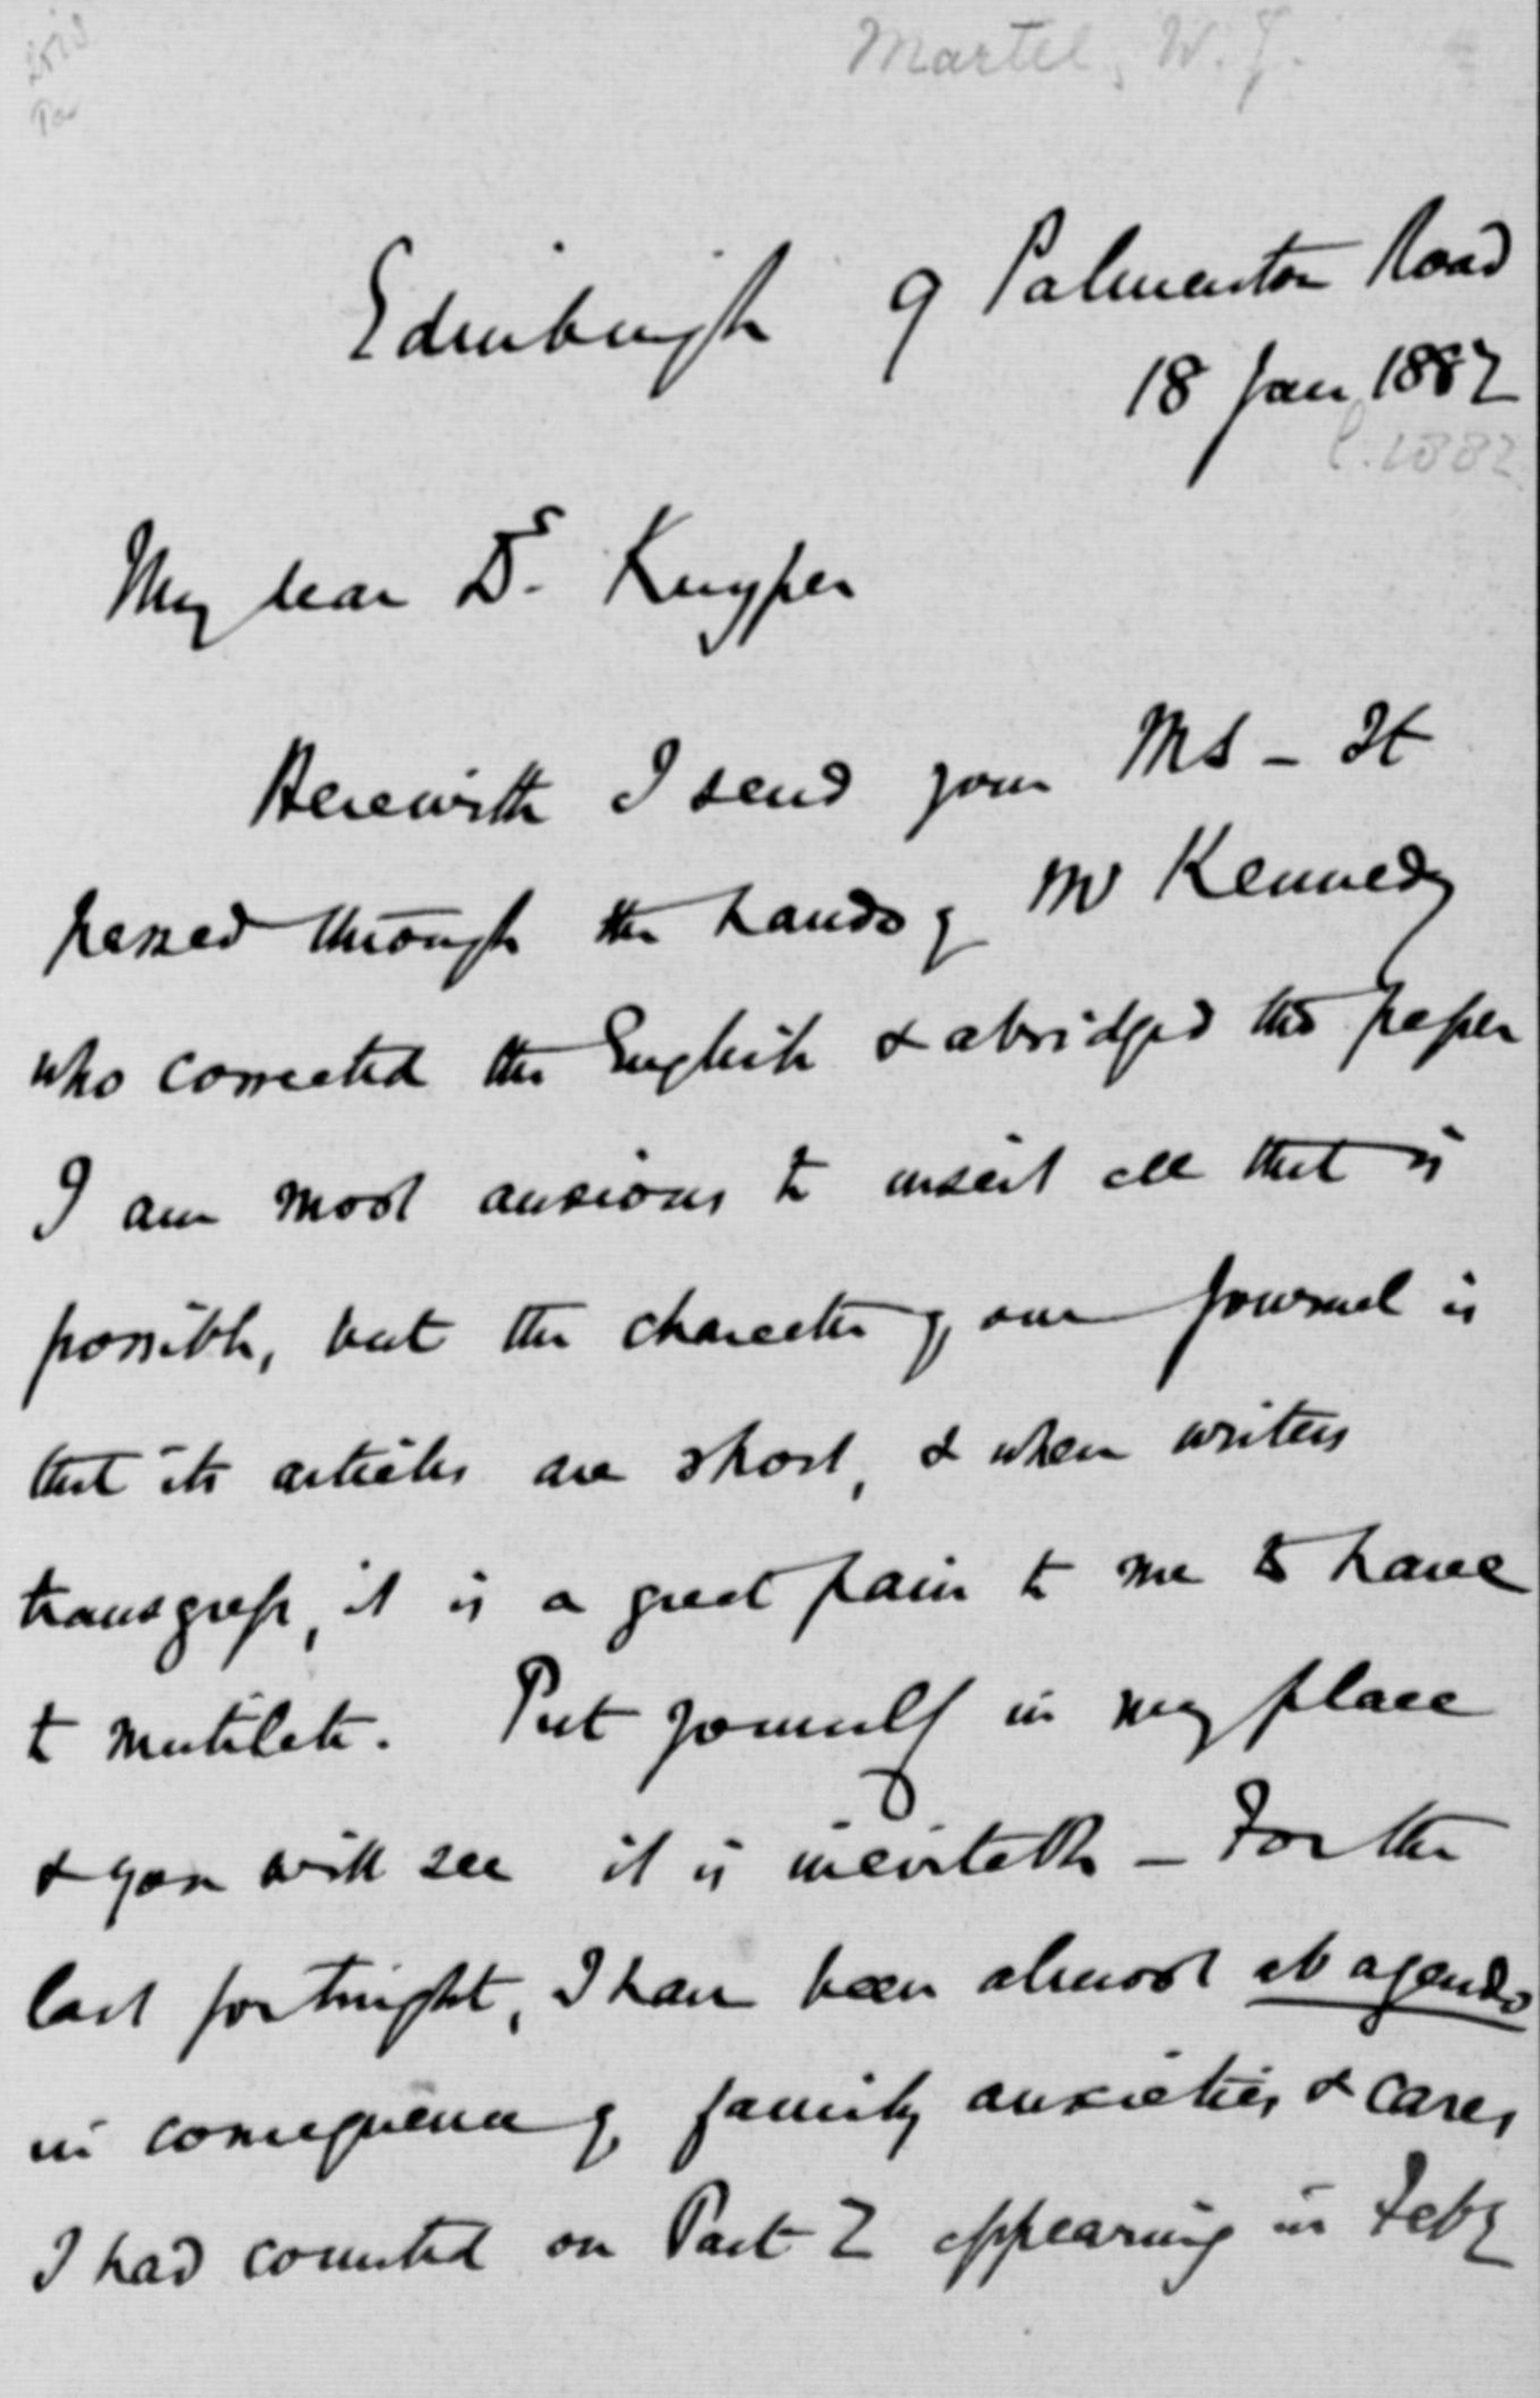 Martel, W. J.
Edinburgh 9 Palmerston Road
18 Jan 1882
c. 1882
My dear Dr. Kuyper
Herewith I send your MS - It
passed through the hands of Mr Kennedy
who corrected the English & abridged the paper
I am most anxious to insert all that is
possible, but the character of our Journal is
that its articles are short, & when writers
transgress, it is a great pain to me to have
to mutilate. Put yourself in my place
& you will see it is inevitable - For the
last fortnight, I have been almost ab agendo
in consequence of family anxieties & cares,
I had counted on Part 2 appearing in Feby